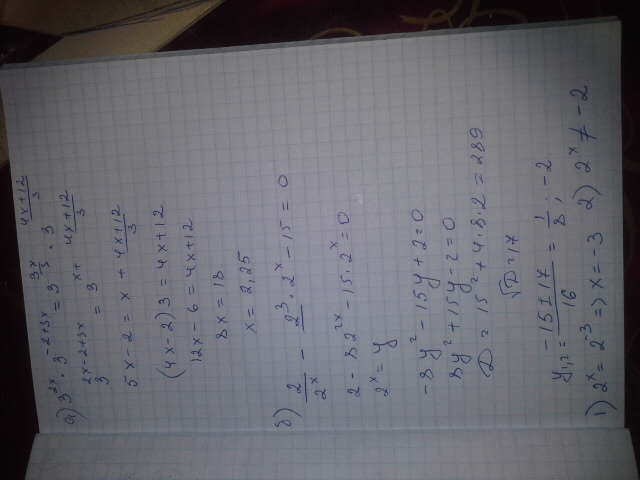 а) 3^{2x} · 3^{-2+3x} = 3^{\frac{3x}{3}} · 3^{\frac{4x+12}{3}}
3^{2x-2+3x} = 3^{x+\frac{4x+12}{3}}
5x - 2 = x + \frac{4x+12}{3}
(4x-2)3 = 4x+12
12x - 6 = 4x+12
8x = 18
x = 2,25
б) \frac{2}{2^x} - 2^3 · 2^x - 15 = 0
2 - 8 2^{2x} - 15 · 2^x = 0
2^x = y
-8y^2 - 15y + 2 = 0
8y^2 + 15y - 2 = 0
D = 15^2 + 4·8·2 = 289
√D = 17
y_{1,2} = \frac{-15±17}{16} = \frac{1}{8} ; -2
1) 2^x = 2^{-3} => x = -3 2) 2^x ≠ -2